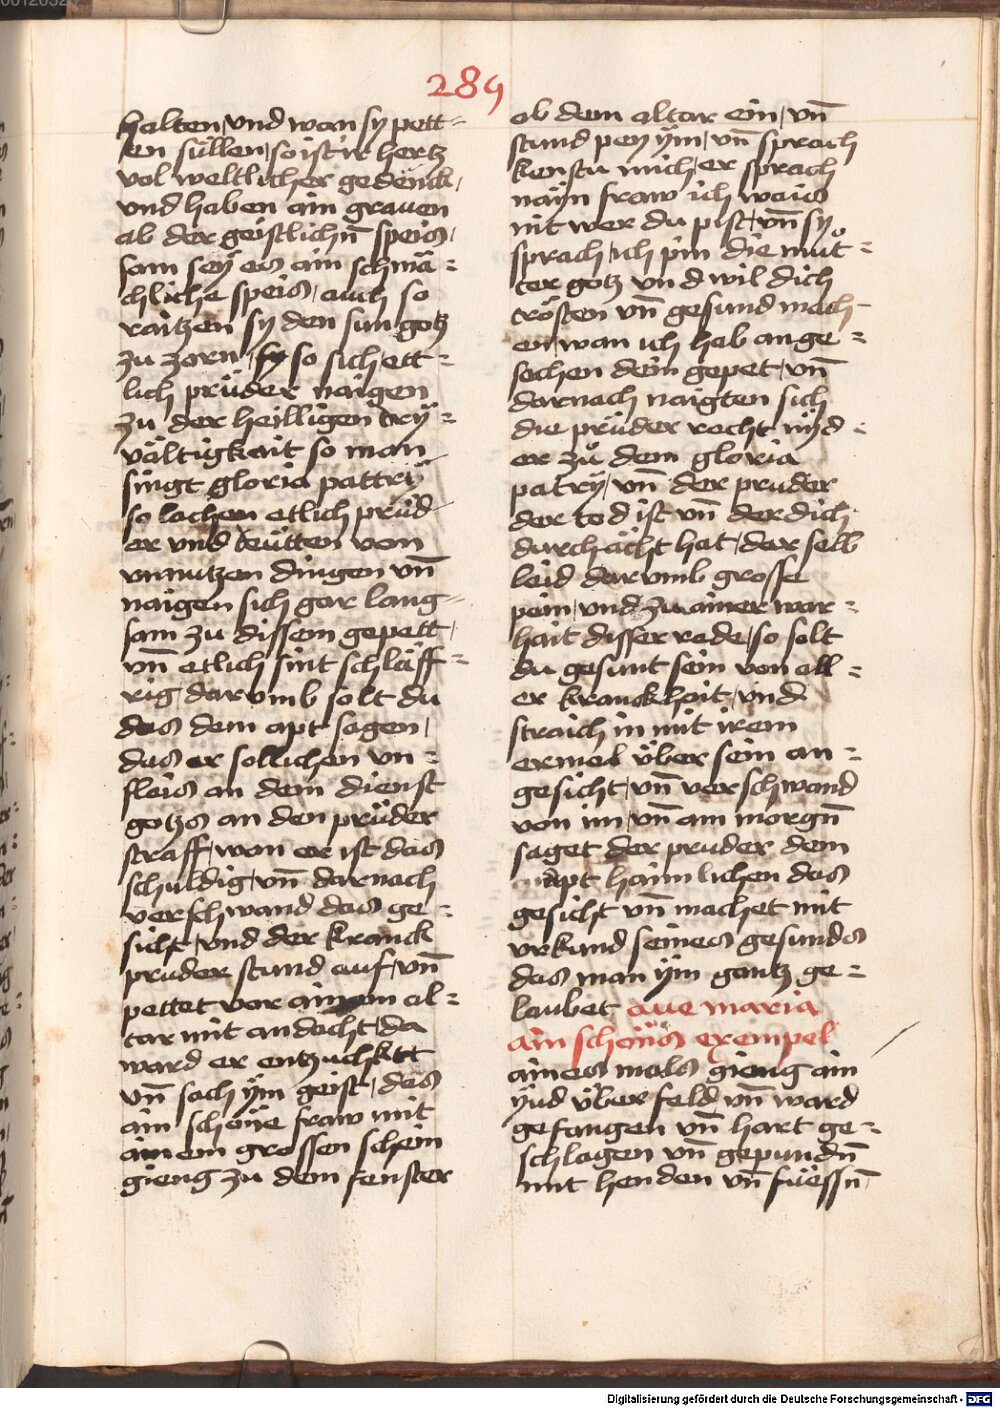 289
halten / vnd wan sy pett=
en süllen / so ist ir hertz
vol weltlicher gedenck /
vnd haben ain grauen
ab der geistlichn̄ speis /
sam seÿ es ain schmä=
chliche speis / auch so
raitzen sy den sun gotz
zu zorn / so sich ett=
lich prüder naigen
zu der heilligen drÿ=
vältigkait so man
singt gloria pattrÿ
so lachen etlich prüd-
er vnd teütten von
vnnutzen dingen vn̄
naigen sich gar lang=
sam zu dissem gepett /
vn̄ etlich sint schläff=
rig / dar vmb solt du
das dem apt sagen /
das er sollichen vn=
fleis an dem dienst
gotzs an den prüder
straff / wan er ist das
schuldig / vn̄ darnach
verschwand das ge=
sicht / vnd der kranck
pruder stund auf / vn̄
pettet vor ainem al=
tar mit andacht / da
ward er entzuckt
vn̄ sach ÿm geist / das
ain schöne fraw mit
ainem grossen schein
gieng zu dem fenster
ob dem altar ein / vn̄
stund peÿ ÿm / vn̄ sprach
kenstu mich / er sprach
näin fraw ich wais
nit wer du pist / vn̄ sy
sprach / ich pin die mut=
ter gotz vnd wil dich
trösten vn̄ gesund mach-
en / wan ich hab ange=
sechen dein gepet / vn̄
darnach naigten sich
die prüder recht nÿd=
er zu dem gloria
patrÿ / vn̄ der pruder
der tod ist vn̄ der dich
durchächt hat / der selb
leid dar vmb grosse
pein / vnd zu ainer war=
hait disser rede / so solt
du gesunt sein von all=
er kranckheit / vnd
straich in mit irem
ermel über sein an=
gesicht / vn̄ verschwand
von im / vn̄ am morgn̄
saget der pruder dem
apt haimlichen das
gesicht vn̄ machet mit
vrkund seines gesunds
das man ÿm gantz ge=
laubet aue maria
ain schöns exempel
aines mals gieng ain
ÿud über feld vn̄ ward
gefangen vn̄ hart ge=
schlagen vn̄ gepundn̄
mit henden vn̄ füessn̄
Digitalisierung gefördert durch die Deutsche Forschungsgemeinschaft - DFG